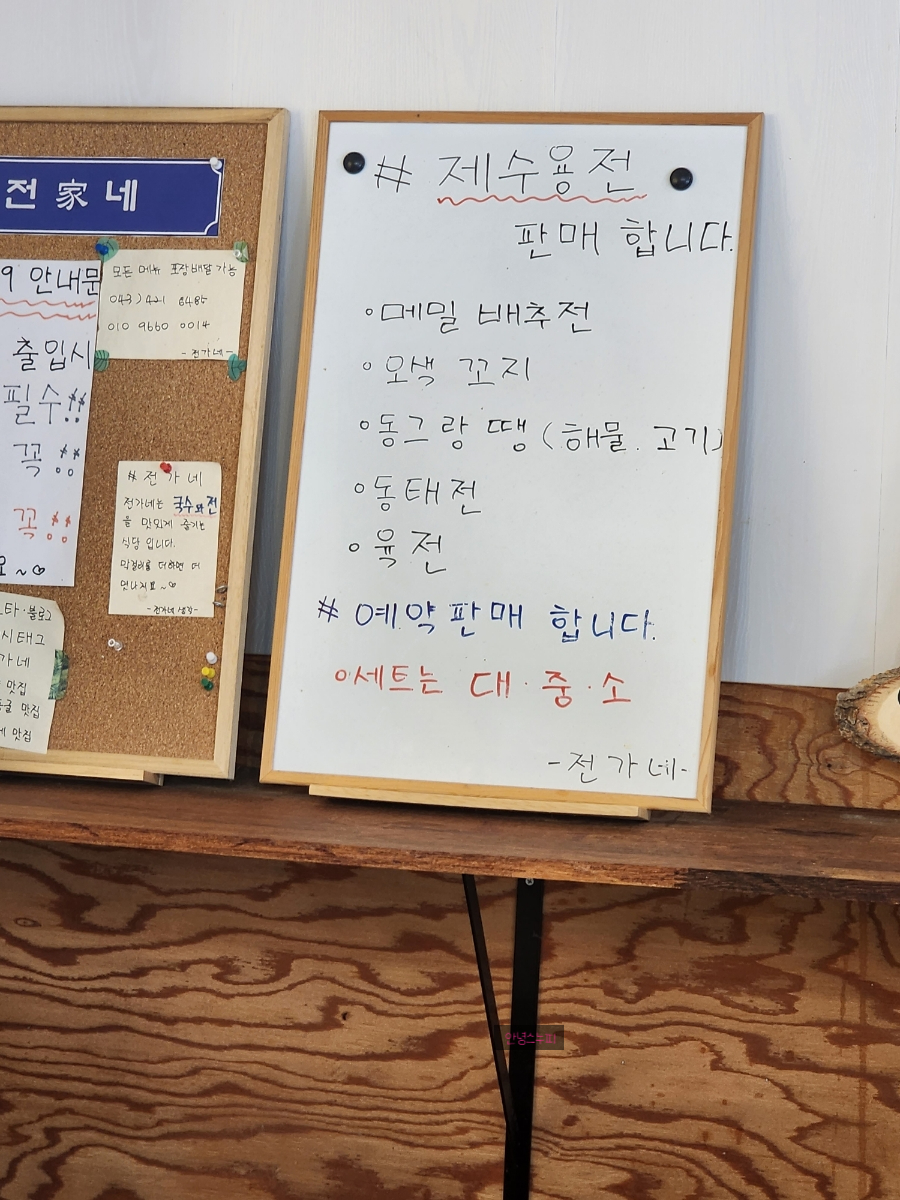 전家네
9 안내문
출입시
필수!!
꼭!!
꼭!!
요~♡
모든 메뉴 포장배달 가능
043) 421 8485
010 9660 0014
-전가네-
# 전가네
전가네는 국수와전
을 맛있게 즐기는
식당 입니다.
막걸리를 더하면 더
멋나지요~♡
-전가네 생각-
스타·블로그
시태그
가네
맛집
동굴 맛집
네 맛집
# 제수용전
판매 합니다.
∘메밀 배추전
∘오색 꼬지
∘동그랑 땡 (해물. 고기)
∘동태전
∘육전
# 예약판매 합니다.
∘세트는 대·중·소
-전가네-
안녕스누피